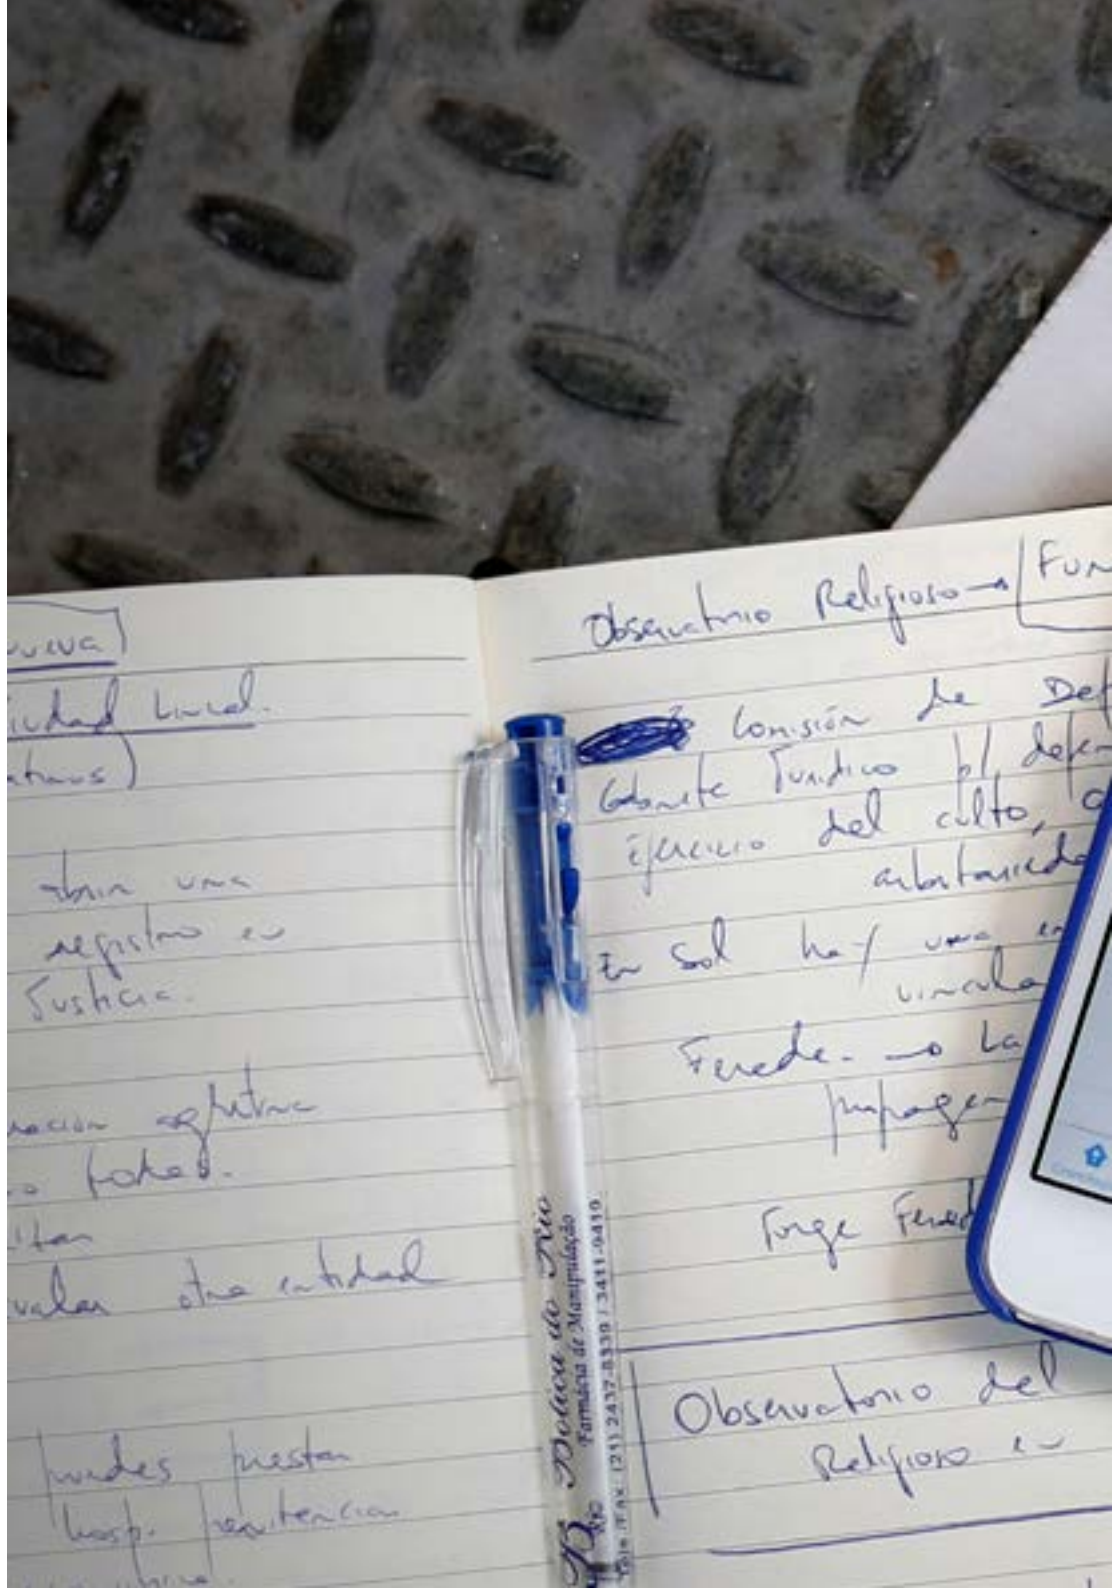 nueva
Ciudad Lineal.
abrir una
registro en
Justicia.
todas.
valar otra entidad
puedes prestar
hosp. penitencias
Observatorio Religioso → Fun
Comisión de Def
Gabinete Jurídico p/ defen
ejercicio del culto,
En Sol hay una en
vincula
Ferede. → La
propagan
Jorge Fered
Observatorio del
Religioso en
Botica do Rio
Farmácia de Manipulação
Tele/Fax: (21) 2437-8339 / 3411-9419